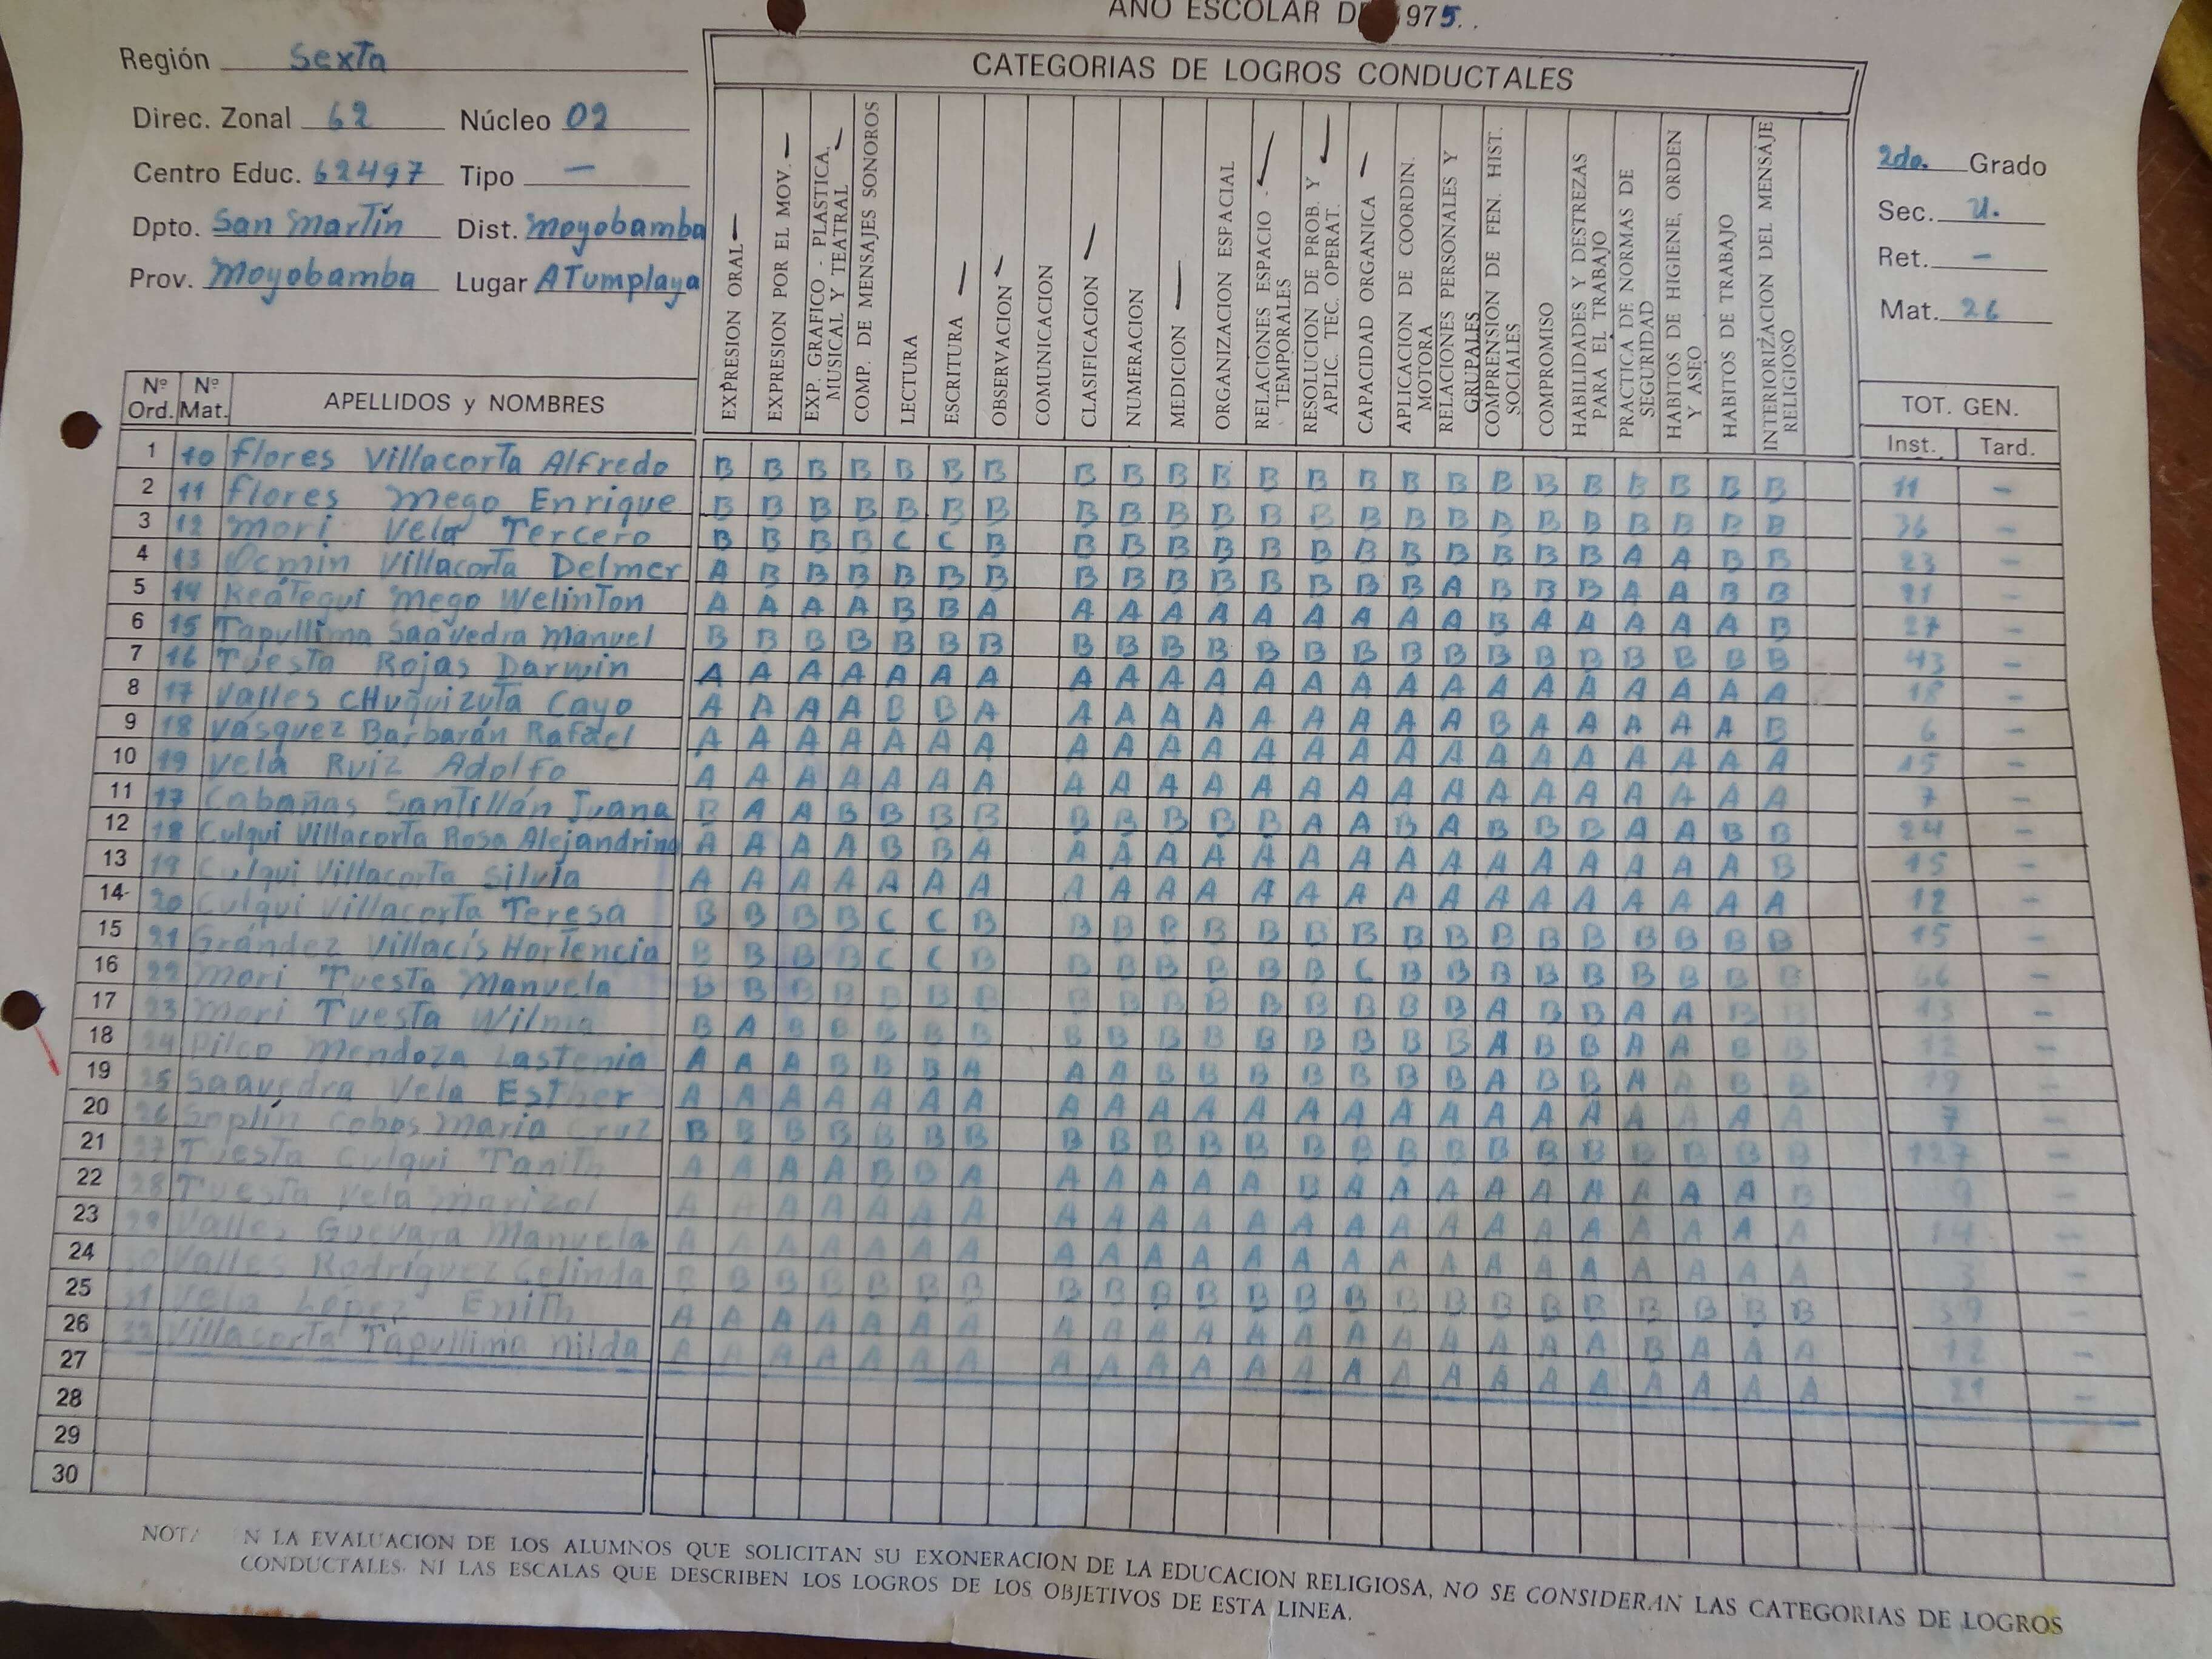 AÑO ESCOLAR DE 1975..
Región Sexta
Direc. Zonal 62 Núcleo 02
Centro Educ. 62497 Tipo —
Dpto. San Martín Dist. Moyobamba
Prov. Moyobamba Lugar ATumplaya
CATEGORIAS DE LOGROS CONDUCTALES
2do. Grado
Sec. U.
Ret. -
Mat. 26
Nº Ord. Nº Mat. APELLIDOS y NOMBRES
EXPRESION ORAL
EXPRESION POR EL MOV.
EXP. GRAFICO - PLASTICA, MUSICAL Y TEATRAL
COMP. DE MENSAJES SONOROS
LECTURA
ESCRITURA
OBSERVACION
COMUNICACION
CLASIFICACION
NUMERACION
MEDICION
ORGANIZACION ESPACIAL
RELACIONES ESPACIO - TEMPORALES
RESOLUCION DE PROB. Y APLIC. TEC. OPERAT.
CAPACIDAD ORGANICA
APLICACION DE COORDIN. MOTORA
RELACIONES PERSONALES Y GRUPALES
COMPRENSION DE FEN. HIST. SOCIALES
COMPROMISO
HABILIDADES Y DESTREZAS PARA EL TRABAJO
PRACTICA DE NORMAS DE SEGURIDAD
HABITOS DE HIGIENE, ORDEN Y ASEO
HABITOS DE TRABAJO
INTERIORIZACION DEL MENSAJE RELIGIOSO
TOT. GEN.
Inst. Tard.
1 10 Flores Villacorta Alfredo B B B B B B B B B B B B B B B B B B B B B B B 11 -
2 11 Flores Mego Enrique B B B B B B B B B B B B B B B B B B B B B B B 36 -
3 12 Mori Vela Tercero B B B B C C B B B B B B B B B B B B B A A B B 23 -
4 13 Ocmin Villacorta Delmer A B B B B B B B B B B B B B B A B B B A A B B 21 -
5 14 Reátegui Mego Welinton A A A A B B A A A A A A A A A A B A A A A A B 27 -
6 15 Tapullima Saavedra Manuel B B B B B B B B B B B B B B B B B B B B B B B 43 -
7 16 Tuesta Rojas Darwin A A A A A A A A A A A A A A A A A A A A A A A 18 -
8 17 Valles CHuquizuta Cayo A A A A B B A A A A A A A A A A B A A A A A B 6 -
9 18 Vásquez Barbarán Rafael A A A A A A A A A A A A A A A A A A A A A A A 15 -
10 19 Vela Ruiz Adolfo A A A A A A A A A A A A A A A A A A A A A A A 7 -
11 17 Cabañas Santillán Juana B A A B B B B B B B B B A A B A B B B A A B B 24 -
12 18 Culqui Villacorta Rosa Alejandrina A A A A B B A A A A A A A A A A A A A A A A B 15 -
13 19 Culqui Villacorta Silvia A A A A A A A A A A A A A A A A A A A A A A A 12 -
14 20 Culqui Villacorta Teresa B B B B C C B B B B B B B B B B B B B B B B B 15 -
15 21 Grández Villacís Hortencia B B B B C C B B B B B B B C B B B B B B B B B 66 -
16 22 Mori Tuesta Manuela B B B B B B B B B B B B B B B B A B B A A B B 13 -
17 23 Mori Tuesta Wilma B A B B B B B B B B B B B B B B A B B A A B B 12 -
18 24 Pilco Mendoza Lastenia A A A B B B A A A B B B B B B B A B B A A B B 19 -
19 25 Saavedra Vela Esther A A A A A A A A A A A A A A A A A A A A A A A 7 -
20 26 Soplín Cobos Maria Cruz B B B B B B B B B B B B B B B B B B B B B B B 127 -
21 27 Tuesta Culqui Tanith A A A A B B A A A A A A B A A A A A A A A A B 9 -
22 28 Tuesta Vela Marizol A A A A A A A A A A A A A A A A A A A A A A A 14 -
23 29 Valles Guevara Manuela A A A A A A A A A A A A A A A A A A A A A A A 3 -
24 30 Valles Rodríguez Gelinda B B B B B B B B B B B B B B B B B B B B B B B 59 -
25 31 Vela López Enith A A A A A A A A A A A A A A A A A A A B A A A 12 -
26 32 Villacorta Tapullima Nilda A A A A A A A A A A A A A A A A A A A A A A A 21 -
27
28
29
30
NOTA N LA EVALUACION DE LOS ALUMNOS QUE SOLICITAN SU EXONERACION DE LA EDUCACION RELIGIOSA, NO SE CONSIDERAN LAS CATEGORIAS DE LOGROS
CONDUCTALES, NI LAS ESCALAS QUE DESCRIBEN LOS LOGROS DE LOS OBJETIVOS DE ESTA LINEA.